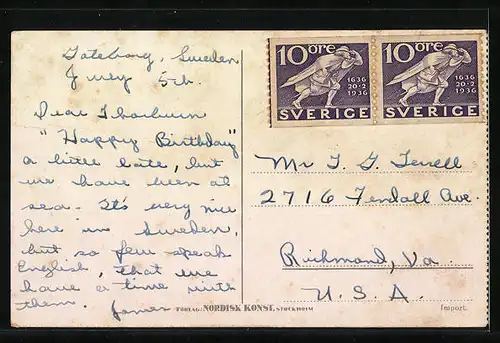 Göteborg, Sweden
July 5th.
Dear Thorburn
"Happy Birthday"
a little late, but
we have been at
sea. It's very nice
here in Sweden,
but so few speak
English, that we
have a time with
them. James
10 ÖRE
1636
20·2
1936
SVERIGE
10 ÖRE
1636
20·2
1936
SVERIGE
Mr T. G. Terrell
2716 Fendall Ave.
Richmond, Va.
U. S. A.
FÖRLAG: NORDISK KONST, STOCKHOLM
Import.